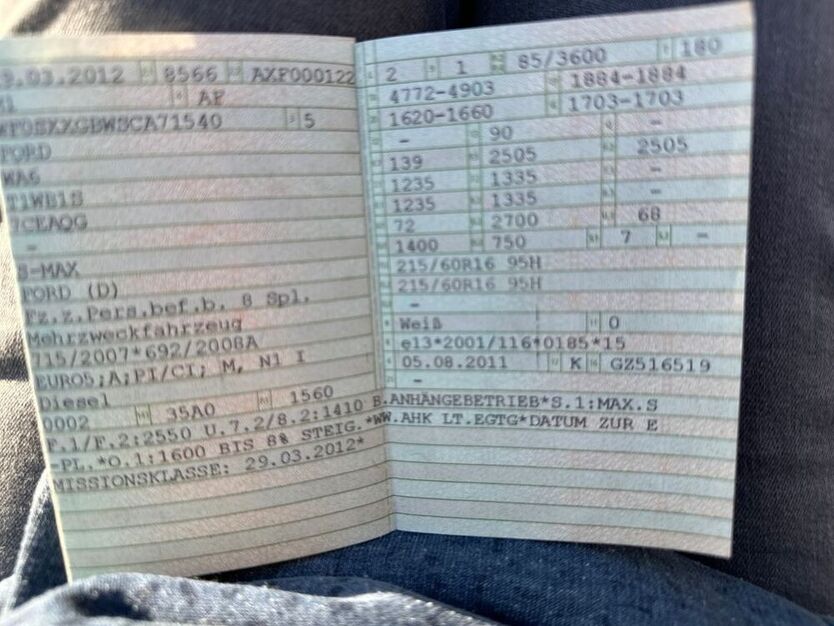 9.03.2012 8566 AXP000122
M1 AF
WF0SXXGBWSCA71540 5
FORD
WA6
T1WB1S
7CEAQG
-
S-MAX
FORD (D)
Fz.z.Pers.bef.b. 8 Spl.
Mehrzweckfahrzeug
715/2007*692/2008A
EURO5;A;PI/CI; M, N1 I
Diesel
0002 35A0 1560
2 1 85/3600 180
4772-4903 1884-1884
1620-1660 1703-1703
- 90 -
139 2505 2505
1235 1335 -
1235 1335 -
72 2700 68
1400 750 7 -
215/60R16 95H
215/60R16 95H
-
Weiß 0
e13*2001/116*0185*15
05.08.2011 K GZ516519
-
F.1/F.2:2550 U.7.2/8.2:1410 B.ANHÄNGEBETRIEB*S.1:MAX.S
-PL.*O.1:1600 BIS 8% STEIG.*WW.AHK LT.EGTG*DATUM ZUR E
MISSIONSKLASSE: 29.03.2012*